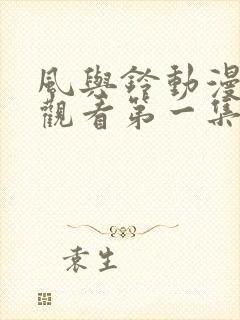 風與鈴動漫
觀看第一集
袁生